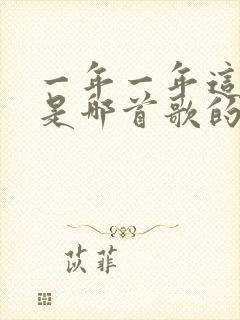 一年一年這
是那首歌的
苡菲